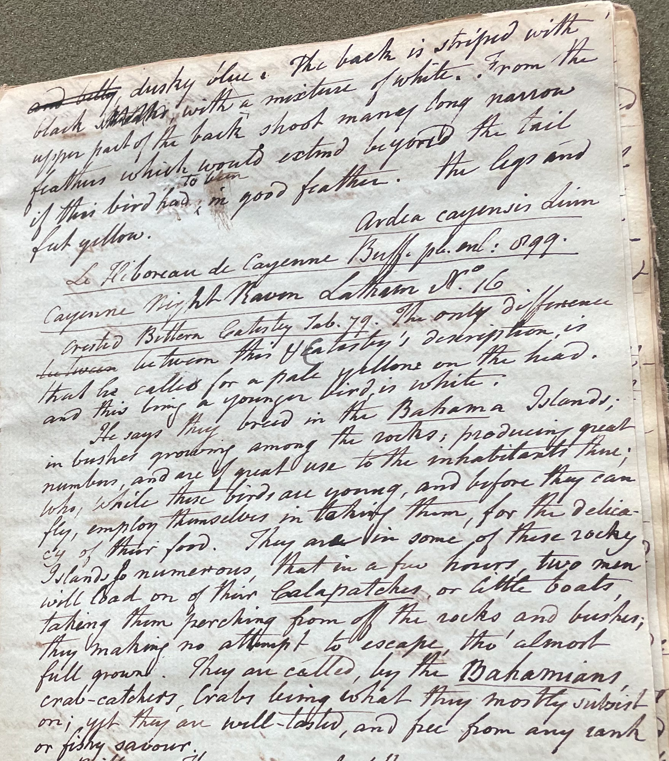 and belly dusky blue. The back is striped with
black with a mixture of white. From the
upper part of the back shoot many long narrow
feathers which would extend beyond the tail
to been
if this bird had, in good feather. The legs and
feet yellow.
Ardea cayensis Linn
Le Hiboreau de Cayenne Buff. pl. enl: 899.
Cayenne Night Raven Latham No. 16
Crested Bittern Catesby Tab. 79. The only difference
between between this & Catesby's description, is
that he called for a pale yellow on the head.
and this being a younger bird, is white.
He says they breed in the Bahama Islands;
in bushes growing among the rocks; producing great
numbers, and are of great use to the inhabitants there;
who, while these birds are young, and before they can
fly, employ themselves in taking them, for the delica-
cy of their food. They are in some of these rocky
Islands so numerous, that in a few hours, two men
will load on of their Calapatches or little boats,
taking them perching from off the rocks and bushes;
they making no attempt to escape, tho' almost
full grown. They are called, by the Bahamians,
crab-catchers, Crabs being what they mostly subsist
on; yet they are well-tasted, and free from any rank
or fishy savour.